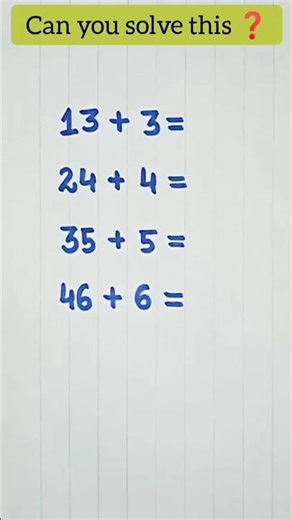 Can you solve this ❓
13 + 3 =
24 + 4 =
35 + 5 =
46 + 6 =